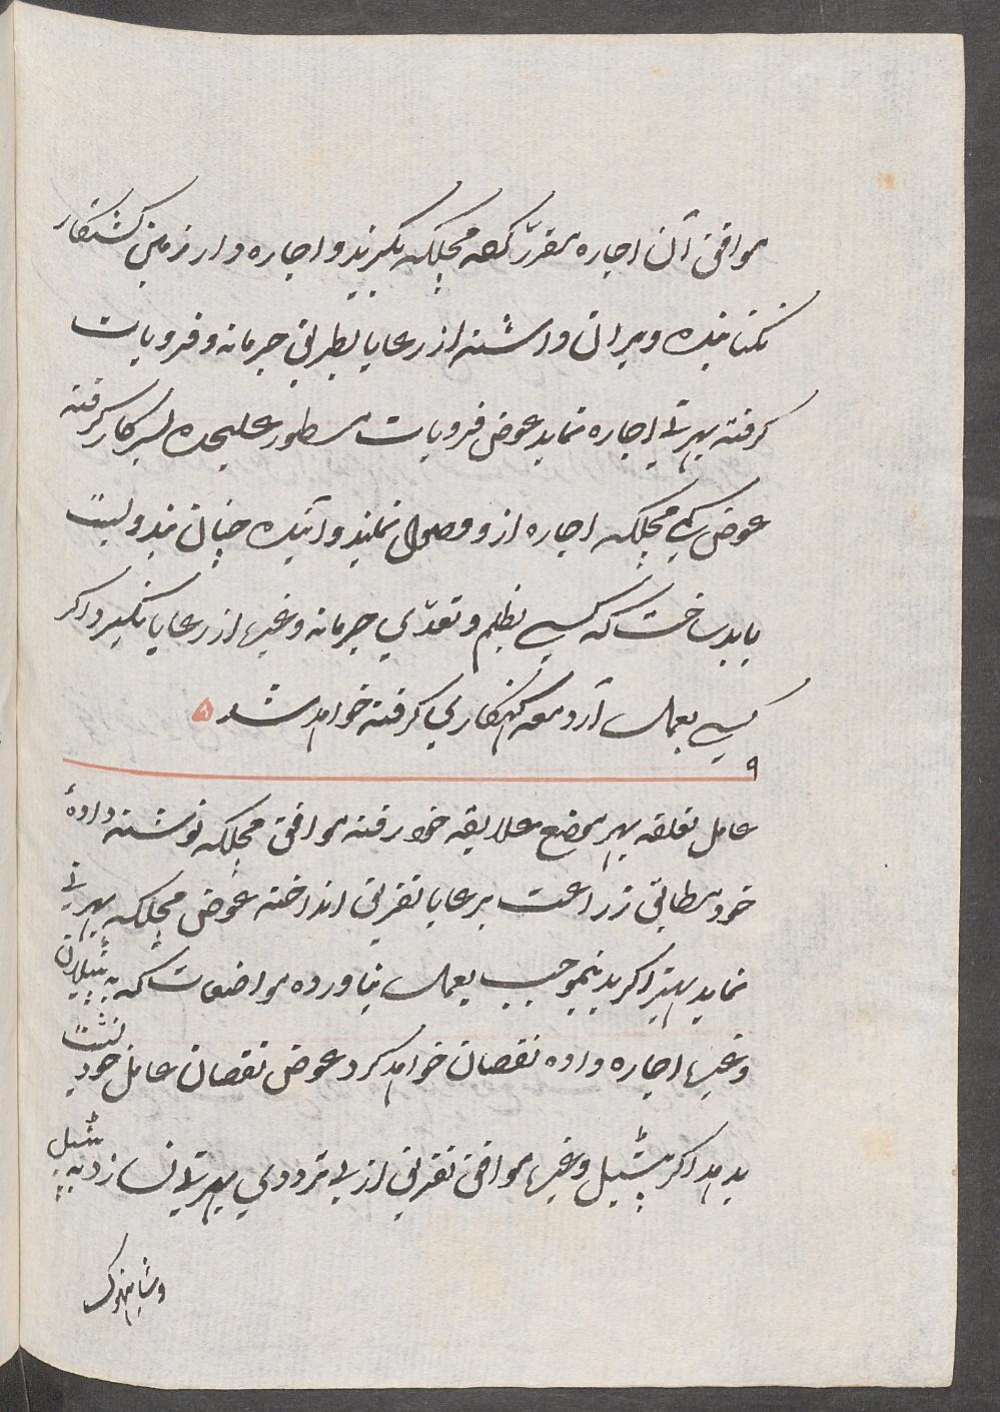 موافق آن اجاره مقرّر کرده مچلکه بگیرند و اجاره دار زمین کشتکار
نکنانیده ویران داشته از رعایا بطریق جرمانه و فرویات
گرفته بهرتی اجاره نماید عوض فرویات مسطور علیحده بسرکار گرفته
عوض کمی مچلکه اجاره ازو وصول نمایند و آینده چنان بندوبست
باید ساخت که کسی بظلم و تعدّی جرمانه و غیره از رعایا نگیرد اگر
کسی بعمل آرد معه گنهکاری گرفته خواهد شد
۹
عامل تعلقه بهر موضع علایقه خود رفته موافق مچلکه نوشته دادهٔ
خود مطابق زراعت بر رعایا تفریق انداخته عوض مچلکه بهرتی
نماید بهتر اگر بدینموجب بعمل نیاورده مواضعات که به پٹیلان
و غیره اجاره داده نقصان خواهد کرد عوض نقصان عامل خود
بدهد اگر پٹیل و غیره موافق تفریق از بی ترددی بهرتی نسازد به پٹیل